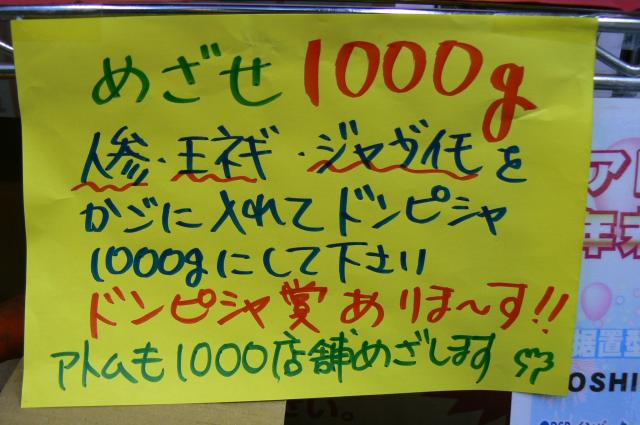 めざせ 1000g
人参・玉ネギ・ジャガイモを
かごに入れてドンピシャ
1000gにして下さい
ドンピシャ賞ありま〜す!!
アトムも1000店舗めざします
い。
ア
年末
据置
OSHI